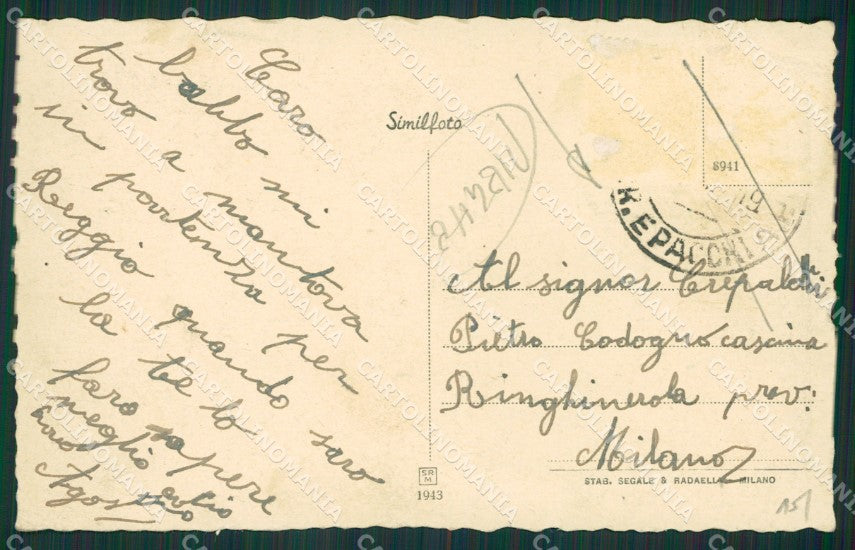 Caro
babbo mi
trovo a mantova
in partenza per
Reggio quando saro
la te lo
faro sapere
meglio
ciao
Agostino
Similfoto
8941
R.E PACCHI
Al signor Crepaldi
Pietro Codogno cascina
Ringhinerola prov:
Milano
STAB. SEGALE & RADAELLI - MILANO
SR
M
1943
15/
CARTOLINOMANIA